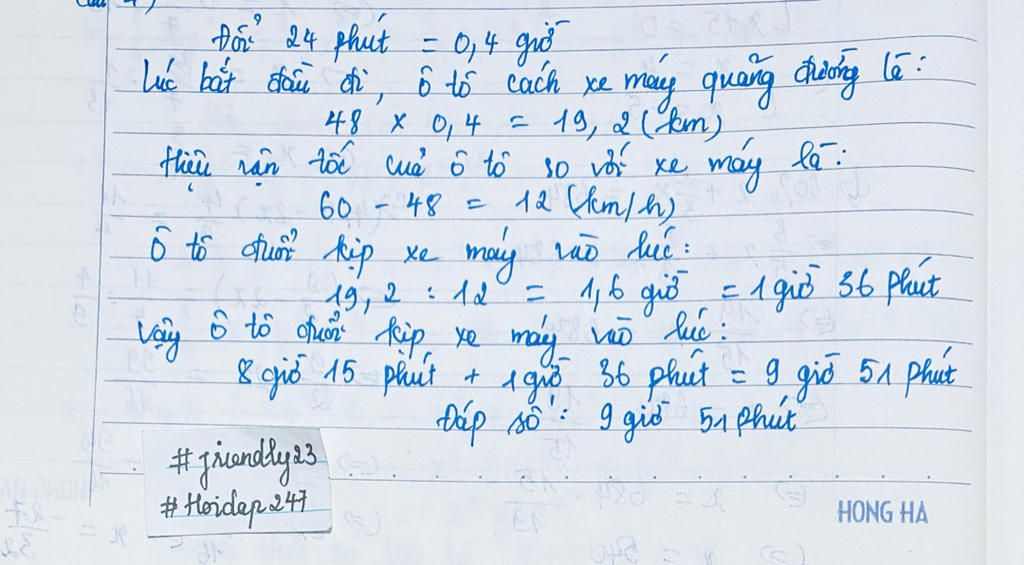 Câu 4)
Đổi 24 phút = 0,4 giờ
Lúc bắt đầu đi, ô tô cách xe máy quãng đường là:
48 x 0,4 = 19,2 (km)
Hiệu vận tốc của ô tô so với xe máy là:
60 - 48 = 12 (km/h)
Ô tô đuổi kịp xe máy vào lúc:
19,2 : 12 = 1,6 giờ = 1 giờ 36 phút
Vậy ô tô đuổi kịp xe máy vào lúc:
8 giờ 15 phút + 1 giờ 36 phút = 9 giờ 51 phút
Đáp số: 9 giờ 51 phút
#friendly23
#Hoidap247
HONG HA